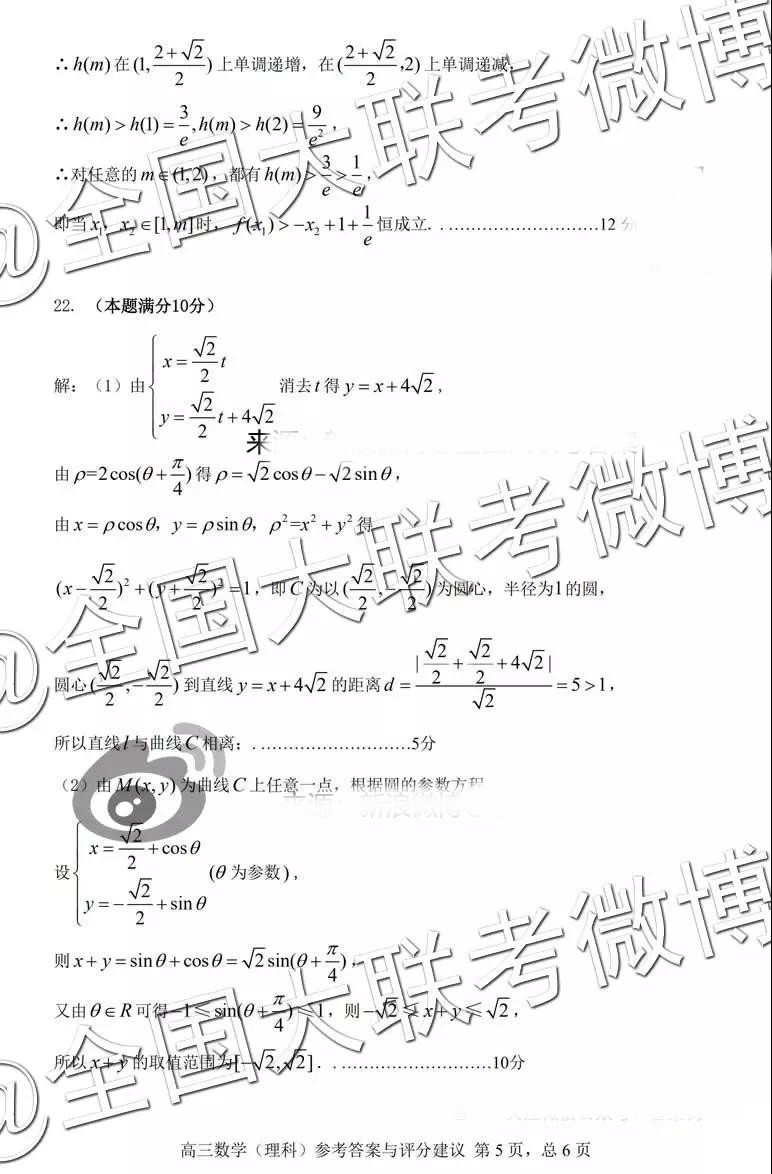 ∴h(m)在(1,(2+√2)/2)上单调递增，在((2+√2)/2,2)上单调递减，
∴h(m)>h(1)=3/e,h(m)>h(2)=9/e²，
∴对任意的m∈(1,2)，都有h(m)>3/e>1/e，
即当x₁，x₂∈[1,m]时，f(x₁)>-x₂+1+1/e恒成立. ...........................12分
22. （本题满分10分）
解：（1）由{x=√2/2 t
y=√2/2 t+4√2 消去t得y=x+4√2，
由ρ=2cos(θ+π/4)得ρ=√2cosθ-√2sinθ，
由x=ρcosθ，y=ρsinθ，ρ²=x²+y²得
(x-√2/2)²+(y+√2/2)²=1，即C为以(√2/2,-√2/2)为圆心，半径为1的圆，
圆心(√2/2,-√2/2)到直线y=x+4√2的距离d=|√2/2+√2/2+4√2|/√2=5>1，
所以直线l与曲线C相离；............................5分
（2）由M(x,y)为曲线C上任意一点，根据圆的参数方程
设{x=√2/2+cosθ
y=-√2/2+sinθ (θ为参数)，
则x+y=sinθ+cosθ=√2sin(θ+π/4)，
又由θ∈R可得-1≤sin(θ+π/4)≤1，则-√2≤x+y≤√2，
所以x+y的取值范围为[-√2,√2]. ...........................10分
高三数学（理科）参考答案与评分建议 第5页，总6页
@全国大联考微博
@全国大联考微博
@全国大联考微博